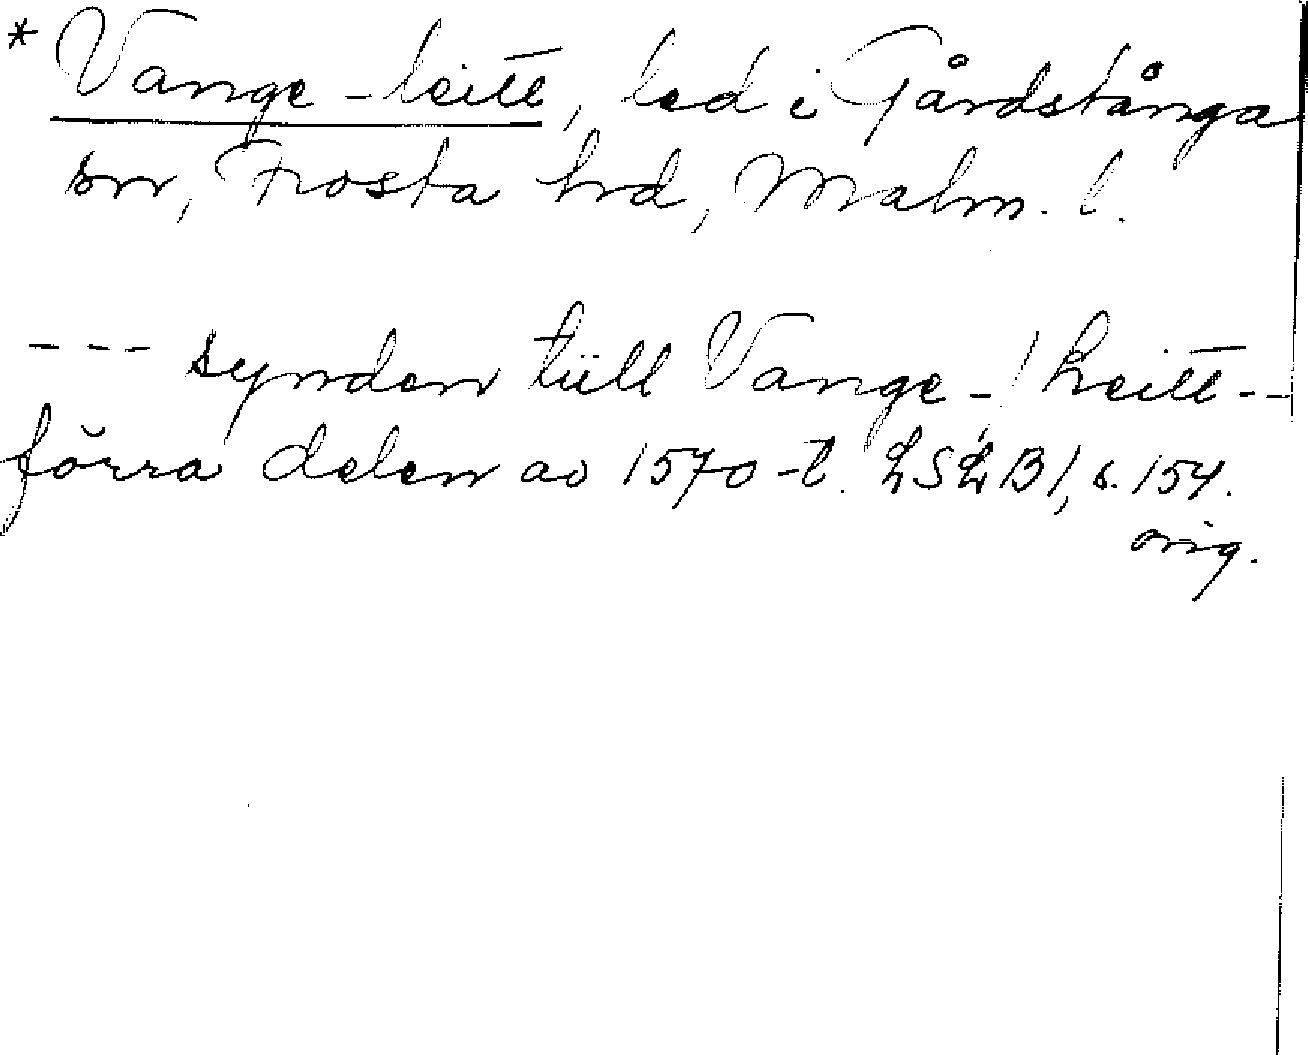 * Vange-leitt, led i Gårdstånga
sn, Frosta hrd, Malm. l.
--- synden tiill Vange-/ Leitt--
förra delen av 1570-t. LSLB 1, s. 154.
orig.